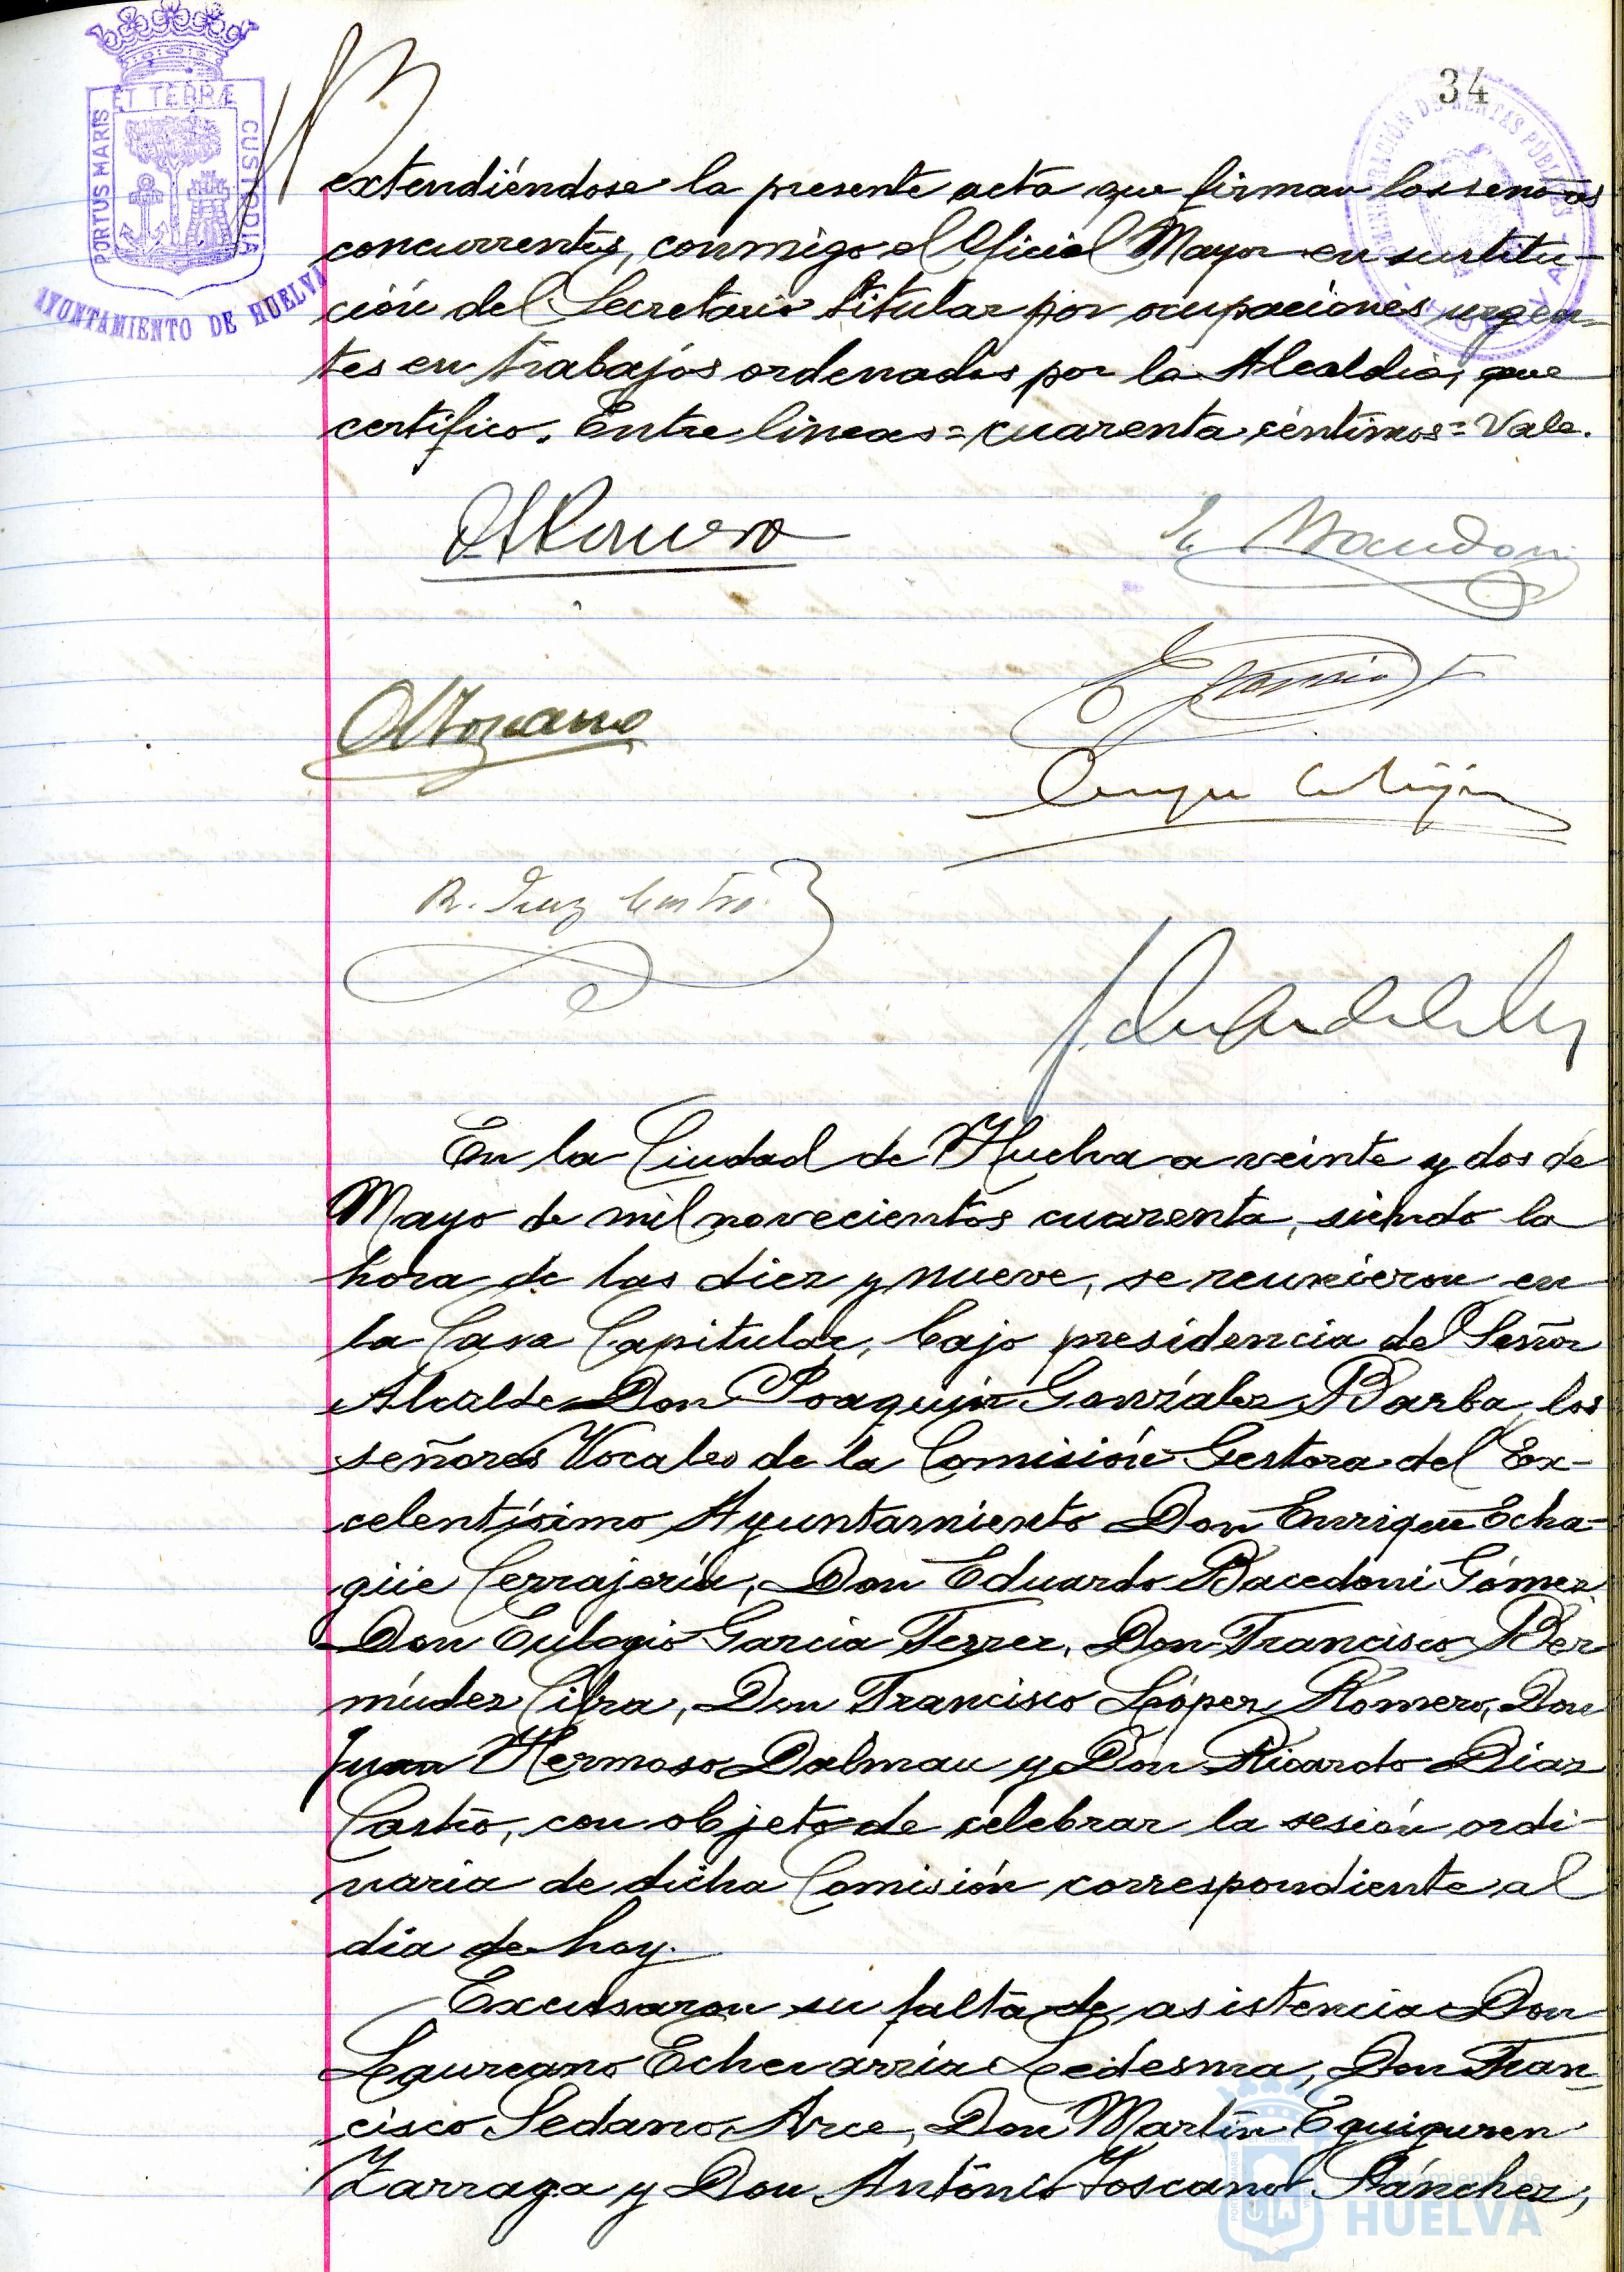 34
ET TERRÆ
PORTUS MARIS
CUSTODIA
AYUNTAMIENTO DE HUELVA
extendiéndose la presente acta que firman los señores
concurrentes, conmigo el Oficial Mayor en sustitu-
ción del Secretario titular por ocupaciones urgen-
tes en trabajos ordenados por la Alcaldia, que
certifico. Entre lineas = cuarenta céntimos = Vale.
R. Diaz Castro
En la Ciudad de Huelva a veinte y dos de
Mayo de mil novecientos cuarenta, siendo la
hora de las diez y nueve, se reunieron en
la Casa Capitular, bajo presidencia del Señor
Alcalde Don Joaquín González Barba, los
señores Vocales de la Comisión Gestora del Ex-
celentísimo Ayuntamiento Don Enrique Echa-
güe Cerrajería, Don Eduardo Bacedoni Gómez,
Don Eulogio Garcia Ferrer, Don Francisco Ber
múdez Cifra, Don Francisco López Romero, Don
Juan Hermoso Dalmau y Don Ricardo Diaz
Castro, con objeto de celebrar la sesión ordi-
naria de dicha Comisión correspondiente al
dia de hoy.
Excusaron su falta de asistencia Don
Laureano Echevarría Ledesma, Don Fran-
cisco Sedano Arce, Don Martín Eguiguren
Zarraga y Don Antonio Toscano Sánchez,
Ayuntamiento de
HUELVA